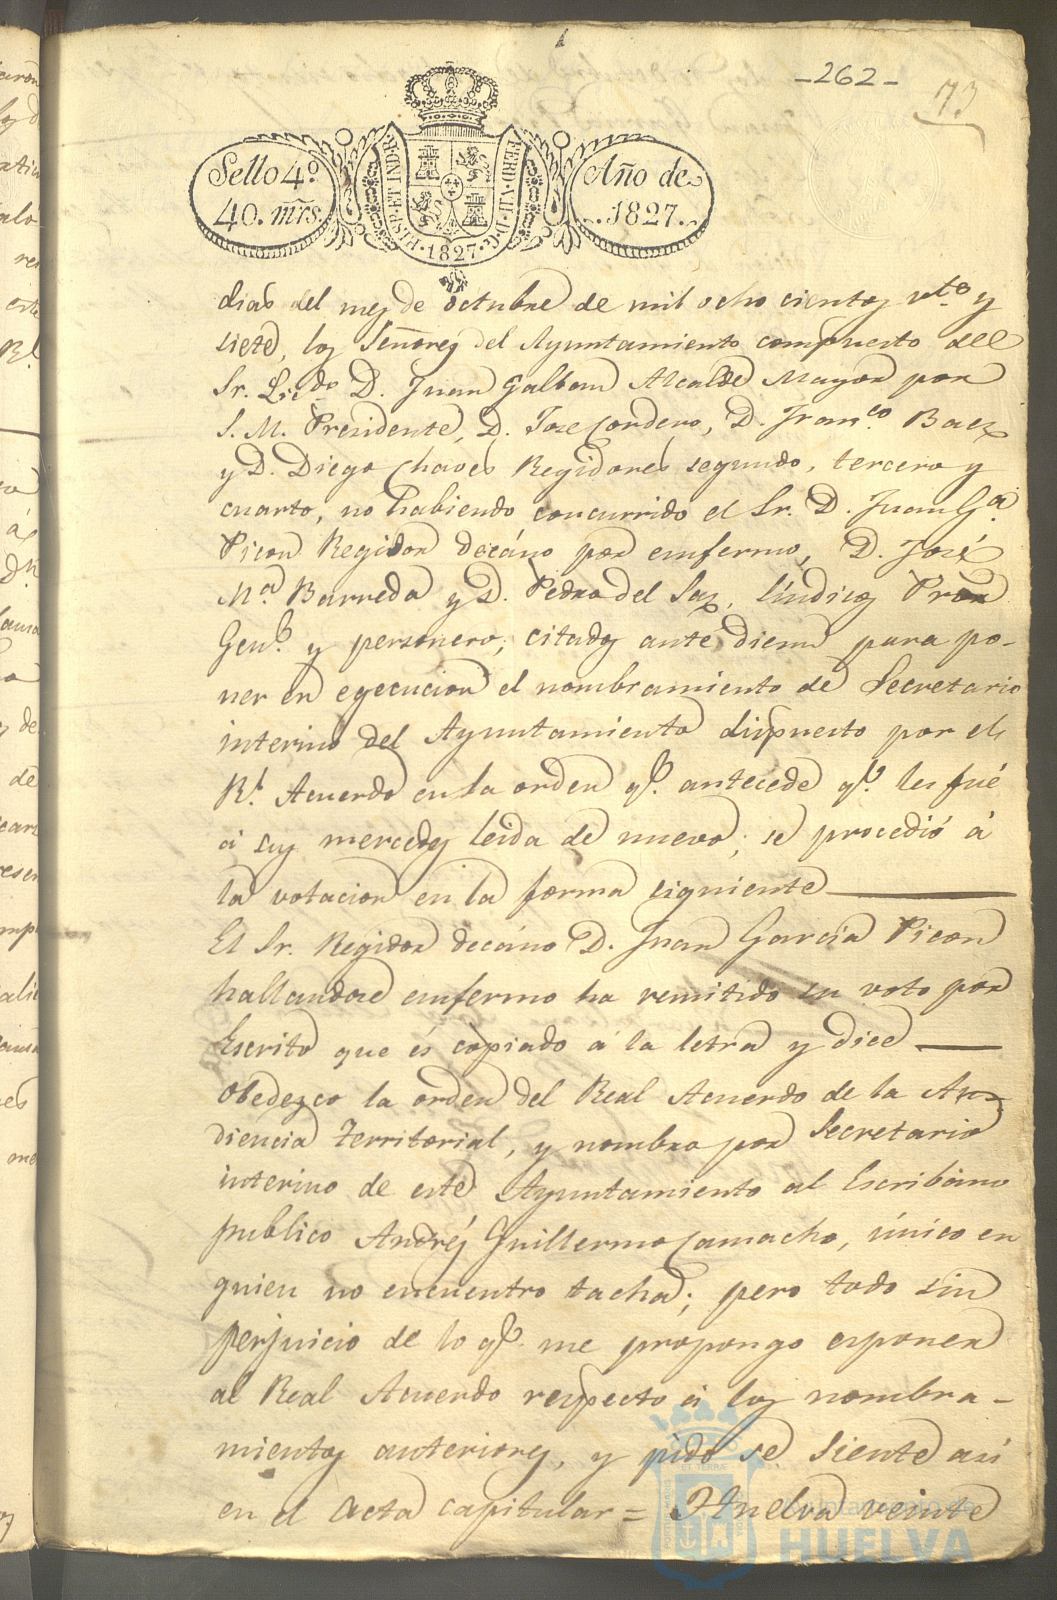 -262-
73
Sello 4º
40. mrs.
HISP. ET IND. R.
FERD. VII. D. G.
1827
Año de
1827.
dias del mes de octubre de mil ocho cientos vte. y
siete, los Señores del Ayuntamiento compuesto del
Sr. Licdo. D. Juan Galban Alcalde Mayor por
S. M. Presidente, D. Jose Cordero, D. Franco. Baez
y D. Diego Chaves Regidores segundo, tercero y
cuarto, no habiendo concurrido el Sr. D. Juan Ga.
Picon Regidor decáno por enfermo, D. José
Ma. Barreda y D. Pedro del Saz, Síndicos Pror.
Genl. y personero, citados ante diem para po-
ner en egecucion el nombramiento de Secretario
interino del Ayuntamiento dispuesto por el
Rl. Acuerdo en la orden qe. antecede qe. les fué
á sus mercedes leida de nuevo; se procedió á
la votacion en la forma siguiente
El Sr. Regidor decáno D. Juan García Picon
hallandose enfermo ha remitido su voto por
Escrito que és copiado á la letra y dice
Obedezco la orden del Real Acuerdo de la Au-
diencia Territorial, y nombro por Secretario
interino de este Ayuntamiento al Escribano
publico Andrés Guillermo Camacho, único en
quien no encuentro tacha; pero todo sin
perjuicio de lo qe. me propongo esponer
al Real Acuerdo respecto á los nombra-
mientos anteriores, y pido se siente asi
en el Acta capitular = Huelva veinte
Ayuntamiento de
HUELVA